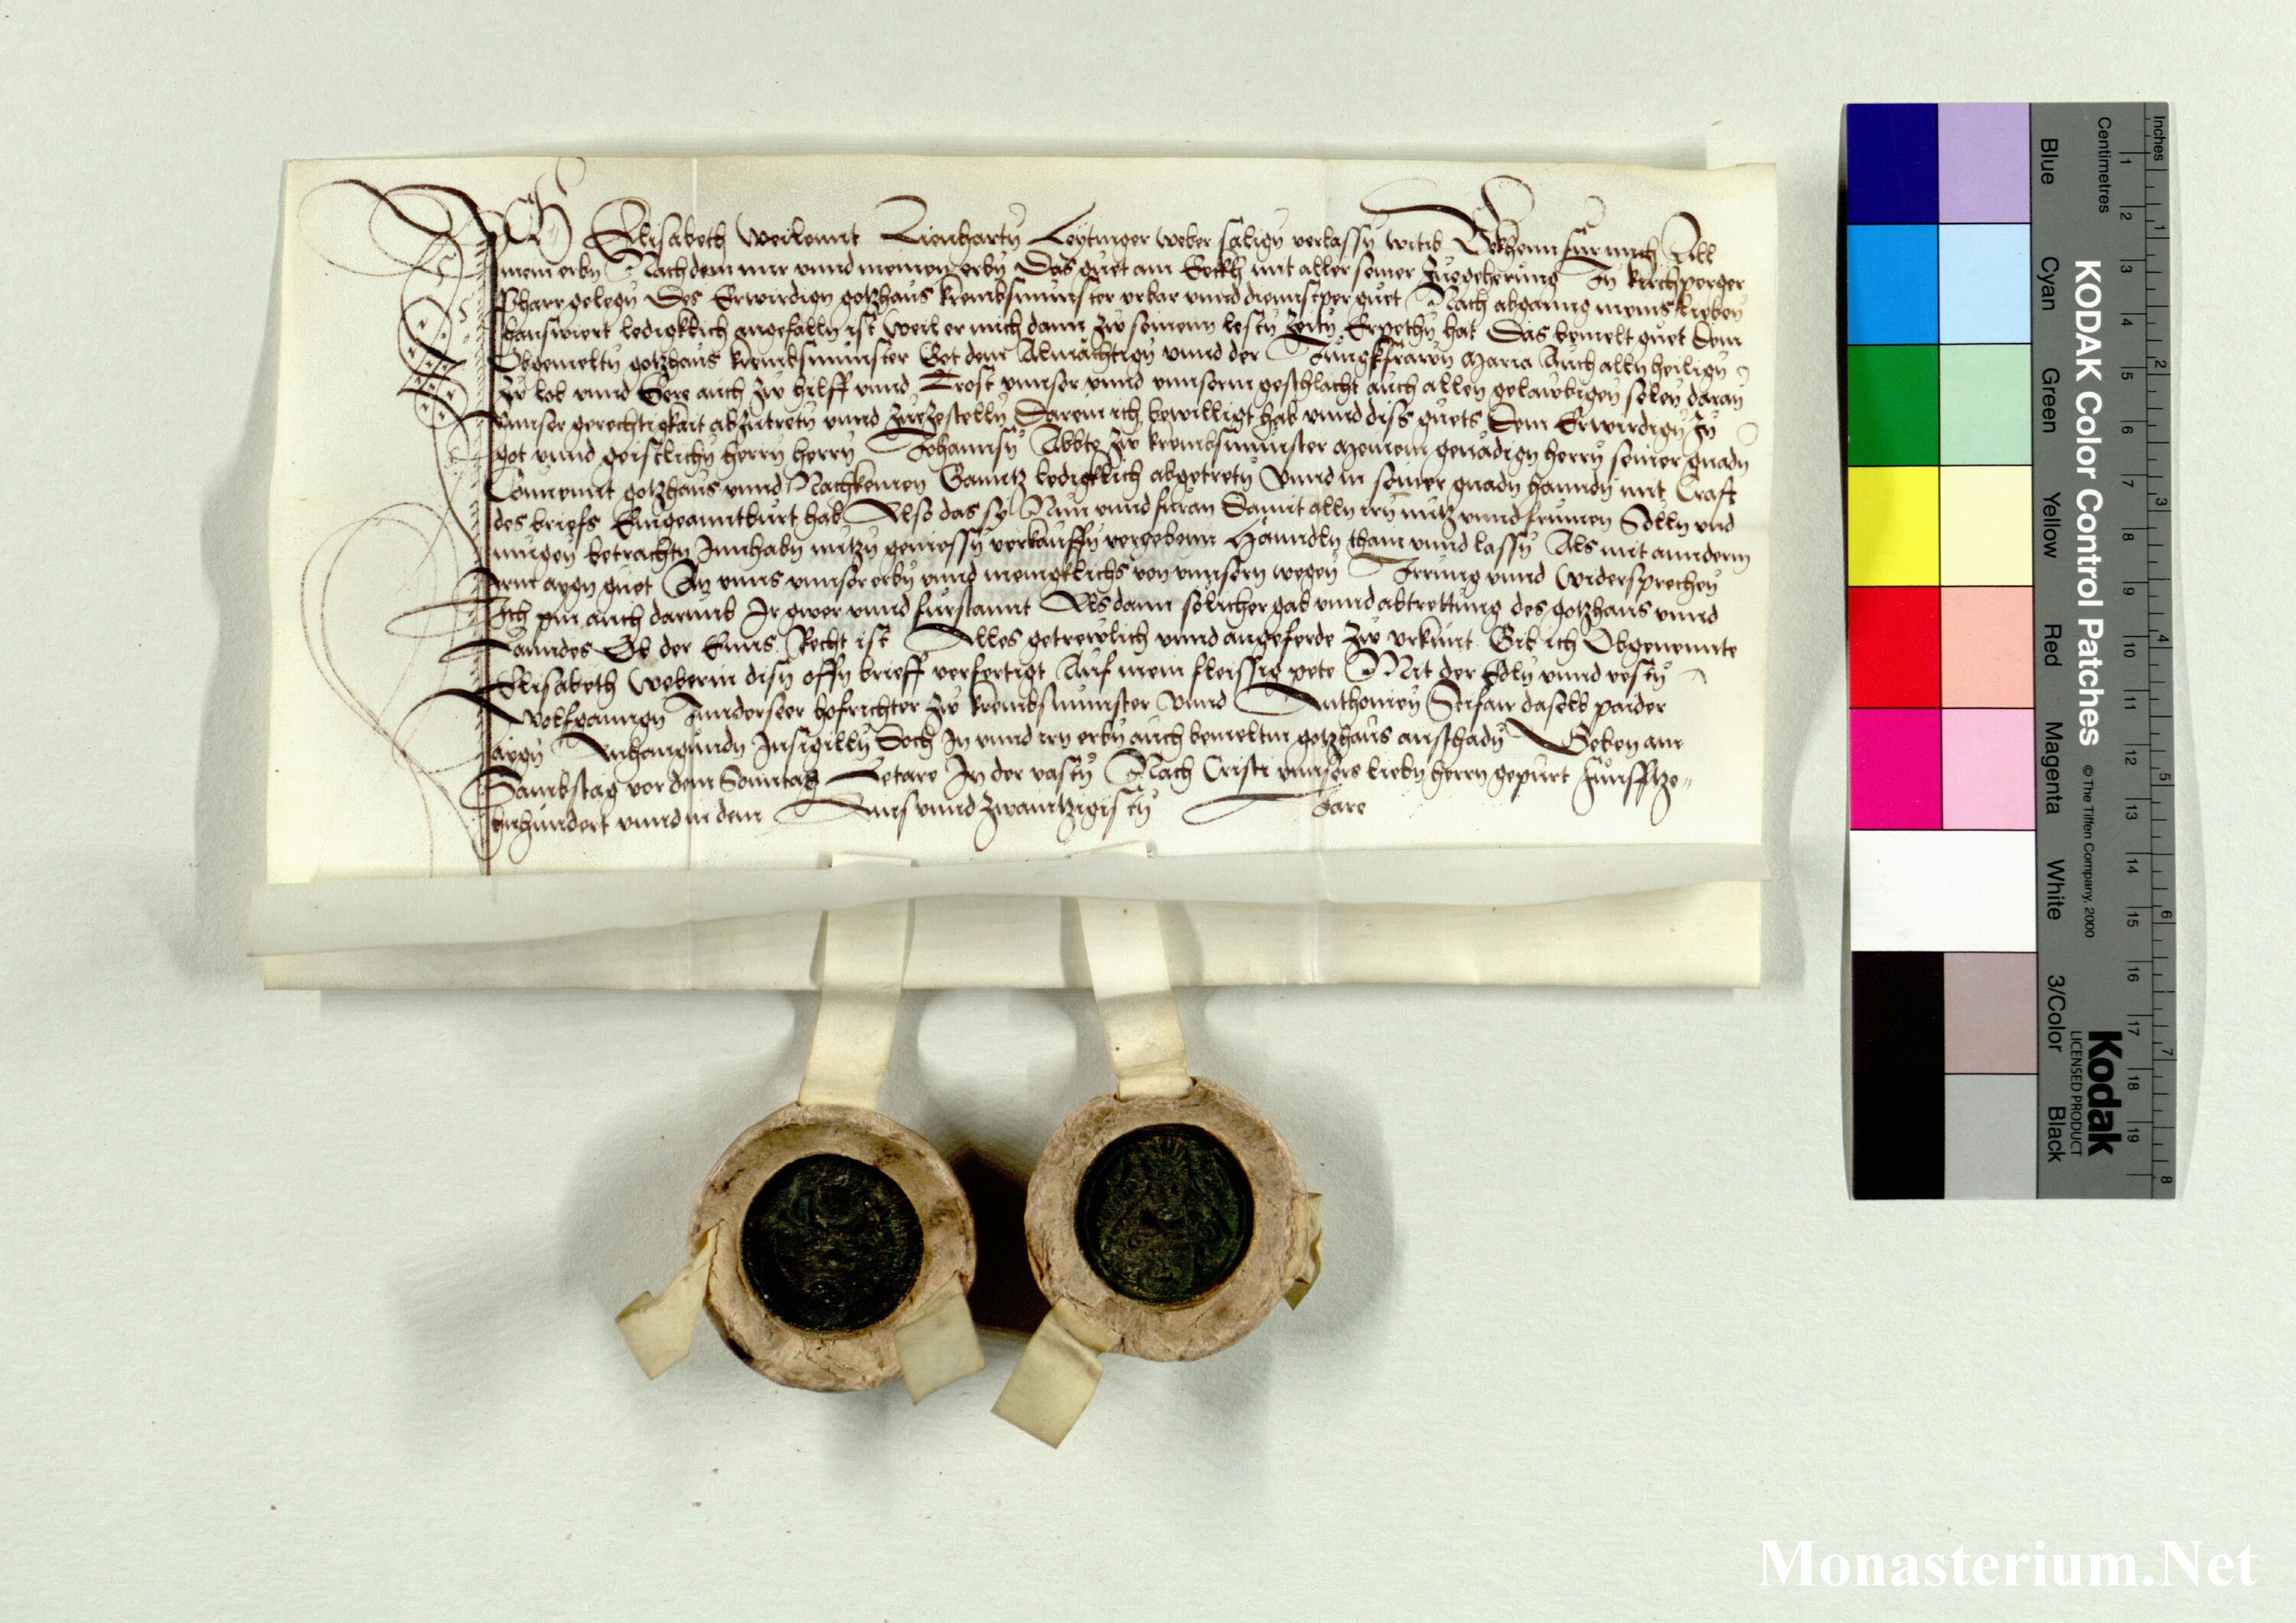 Ich Elisabeth weilennt Lienhartn Leytinger weber sälign verlassn witib Bekhenn für mich All
mein erbn Nachdem mir vnnd meinen erbn Das guet am Eckh mit aller seiner zuegehörung In kirchperger
Pharr gelegn Des Erwirdign gotzhaus krembsmünster vrbar vnnd diennstper guet Nach abganng meins lieben
hauswiert ledigklich angefalln ist weil er mich dann zw seinenn lestn zeitn Erpethn hat Das bemelt guet Dem
Obgemeltn gotzhaus krembsmünster Got dem Almächtign vnnd der Jungkfrawn Maria Auch alln heilign
zw lob vnnd Eere auch zw hilff vnnd Trost vnnser vnnd vnnserm geschlächt auch allen gelawbigen selen daran
vnnser gerechtigkait abzutretn vnnd zuezestelln Darein ich bewilligt hab vnnd diss guets Dem Erwirdign In
got vnnd geistlichn herrn herrn Johannsn Abbte zw krembsmünster meinem genädign herrn seiner gnadn
Conuennt gotzhaus vnnd Nachkomen Ganntz ledigklich abgetretn Vnnd in seiner gnadn hanndn mit Craft
des briefs Eingeanntburt hab Also das sy Nun vnnd füran Damit alln irn nutz vnnd frumen Solln vnd
mugen betrachtn Innhabn nutzn geniessn verkauffn vergebenn Hanndln thain vnnd lassn Als mit annderm
irm aygn guet An vnns vnnser erbn vnnd menigklichs von vnnsern wegen Irrung vnnd widersprechen
Ich pin auch darumb Ir gwer vnnd fürstannt Als dann sölicher gab vnnd abtrettung des gotzhaus vnnd
Lanndes Ob der Enns Recht ist Alles getrewlich vnnd angeferde Zw vrkunt Gib ich Obgenennte
Elisabeth weberin disn offn brieff verfertigt Auf mein fleissig pete Mit der Edln vnnd vestn
Wolfganngn Innderseer hofrichter zw krembsmünster vnnd Anthonien Stifan daselb paider
aygn Anhangundn Insigilln Doch In vnnd irn erbn auch bemeltm gotzhaus anschadn Geben am
Sambstag vor dem Sonntag Letare In der vastn Nach Cristi vnnsers liebn herrn gepurt Fünffze-
henhundert vnnd in dem Ains vnnd zwaintzigistn Jare
Blue
Cyan
Green
Yellow
Red
Magenta
White
3/Color
Black
KODAK Color Control Patches
© The Tiffen Company, 2000
Kodak
LICENSED PRODUCT
Centimetres
1 2 3 4 5 6 7 8 9 10 11 12 13 14 15 16 17 18 19
Inches
1 2 3 4 5 6 7 8
Monasterium.Net